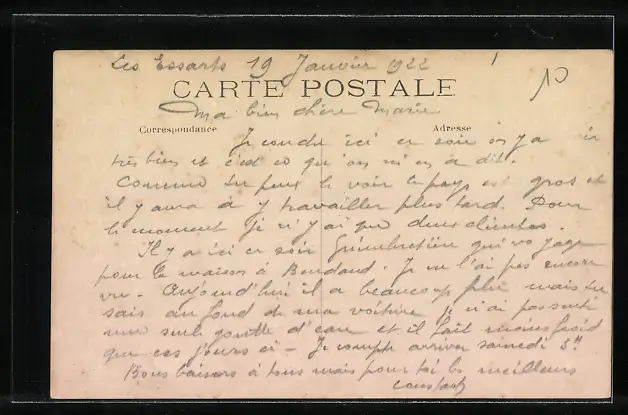 Les Essarts 19 Janvier 1922
10
CARTE POSTALE
Ma bien chère Marie
Correspondance
Adresse
Je couche ici ce soir on y a
très bien et c'est ce qu'on m'en a dit.
Comme tu peux le voir le pays est gros et
il y aura à y travailler plus tard. Pour
le moment je n'y ai que deux clientes.
Il y a ici ce soir qui voyage
pour la maison à . Je ne l'ai pas encore
vu. Aujourd'hui il a beaucoup plu mais tu
sais au fond de ma voiture je n'ai pas senti
une seule goutte d'eau et il fait moins froid
que ces jours ci - Je compte arriver samedi S.
Bons baisers à tous mais pour toi les meilleurs